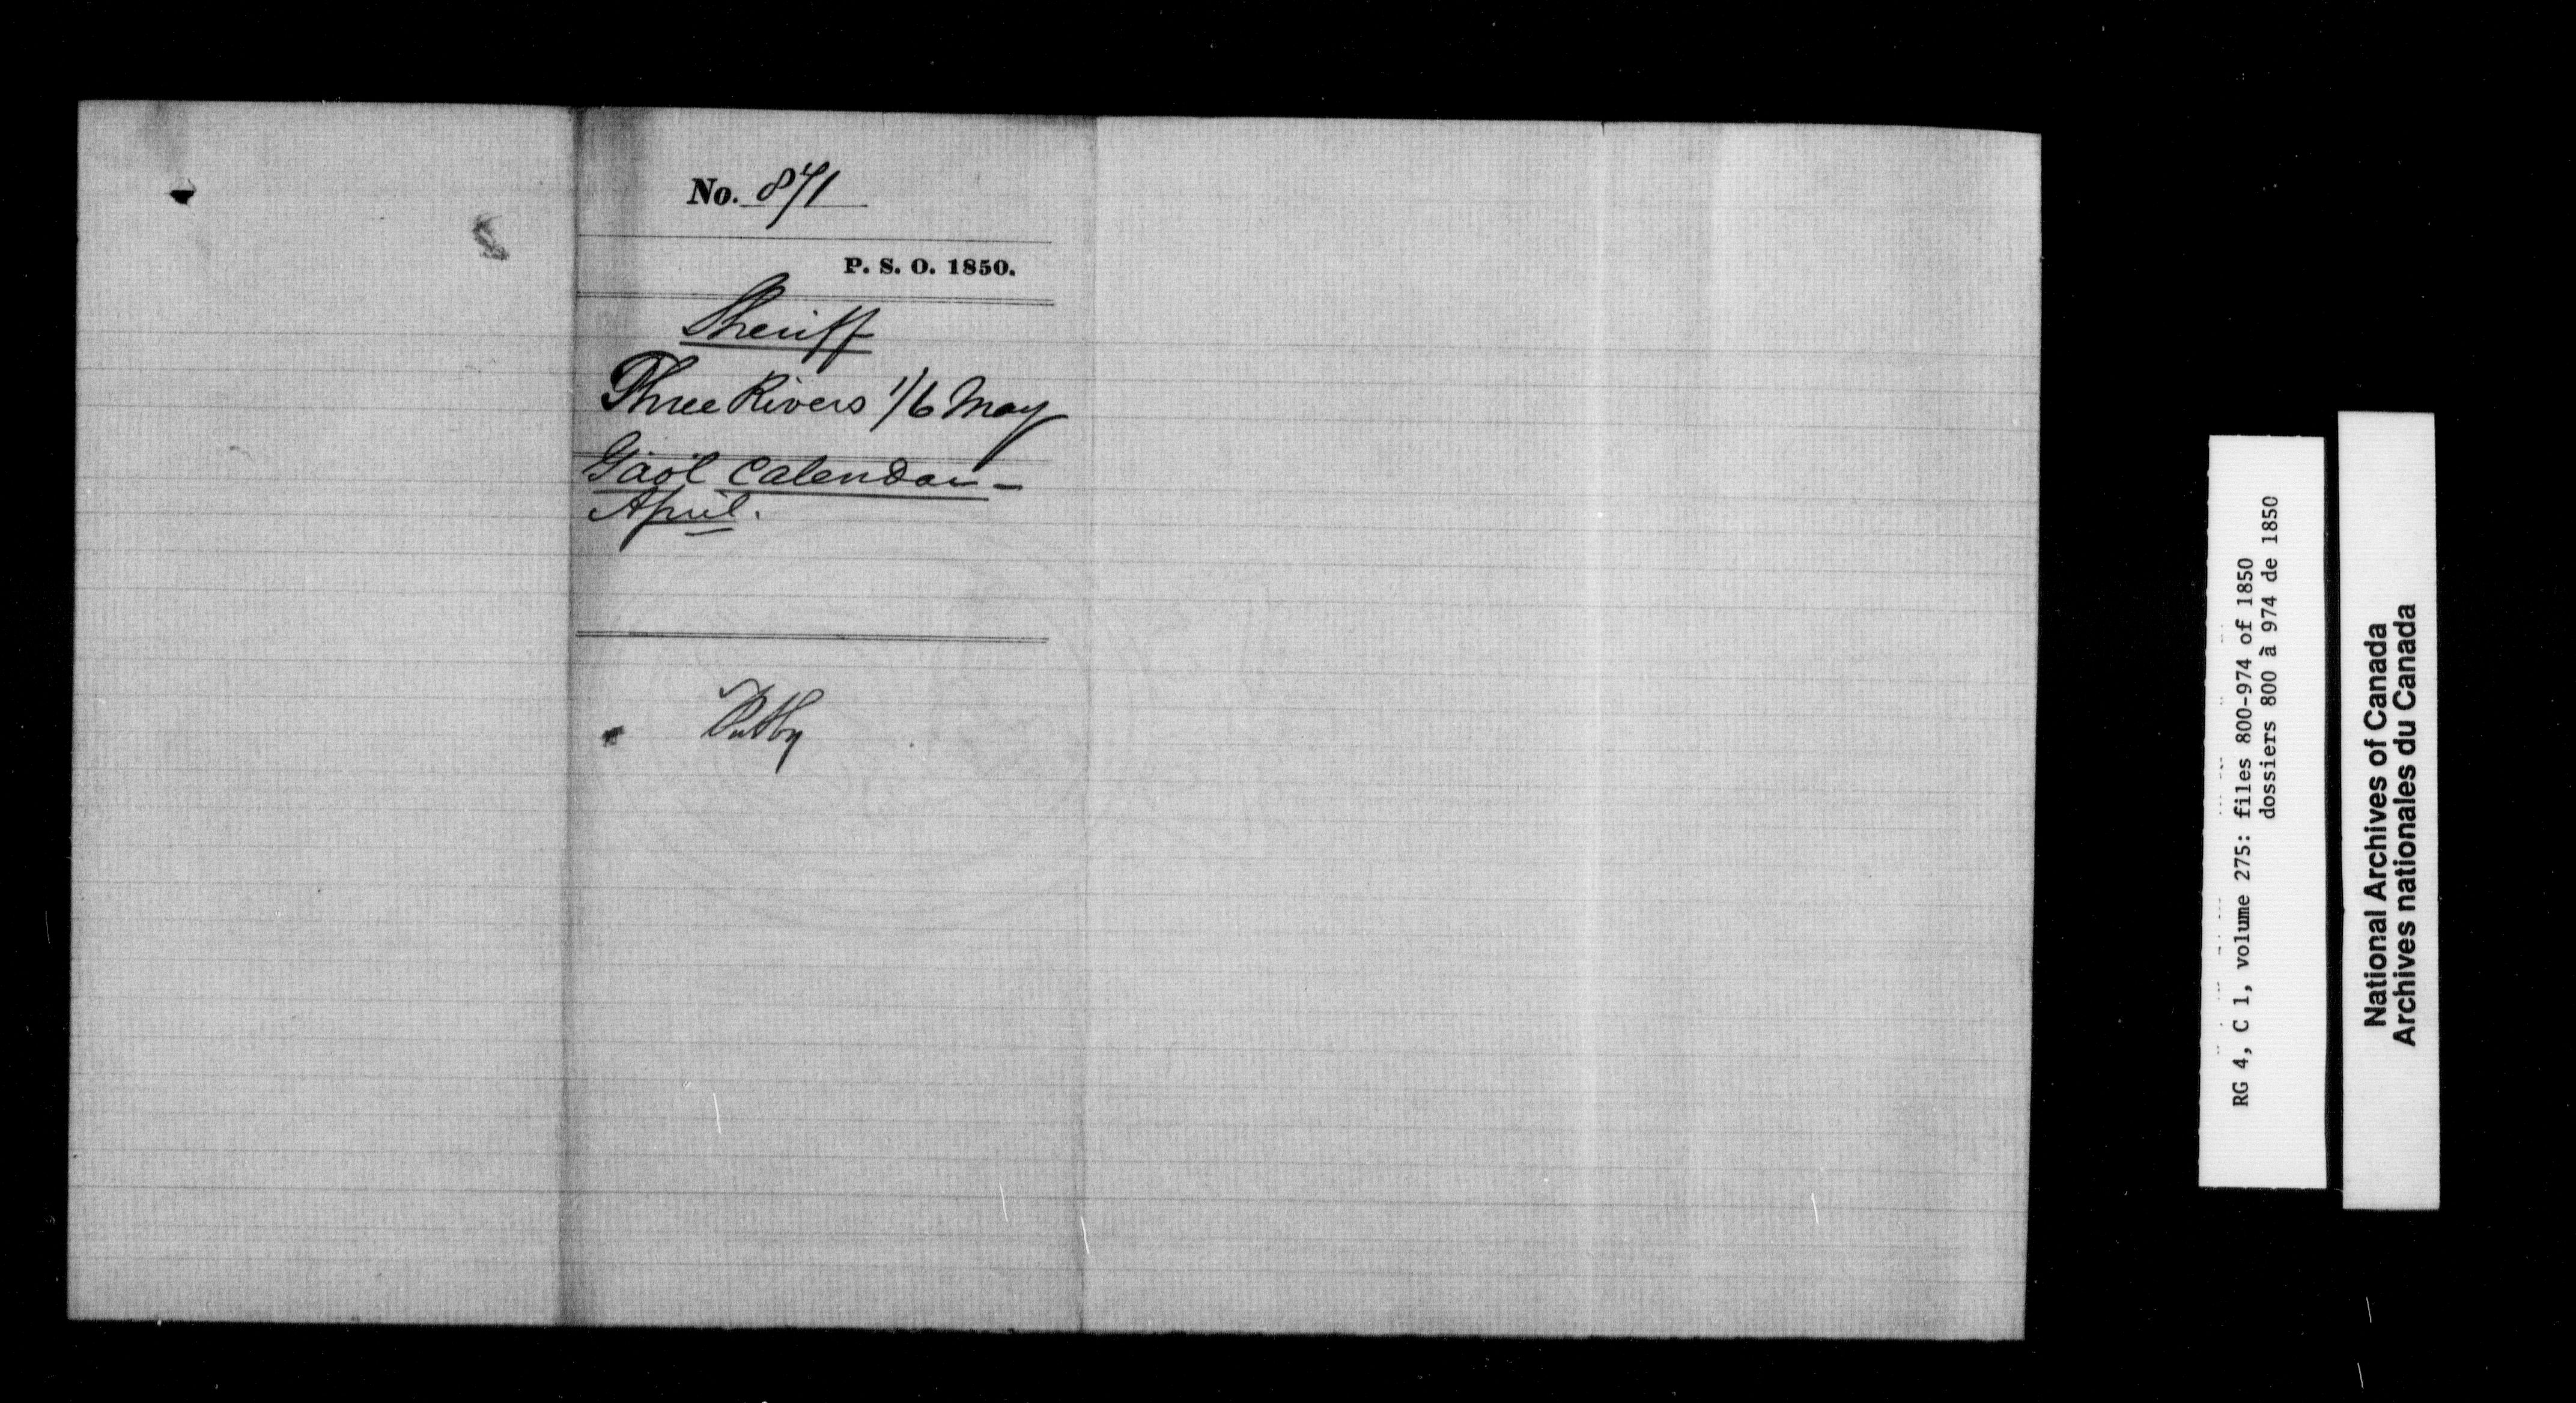 No. 871
P. S. O. 1850.
Sheriff
Three Rivers 1/6 May
Gaol Calendar -
April.
Put by
RG 4, C 1, volume 275: files 800-974 of 1850
dossiers 800 à 974 de 1850
National Archives of Canada
Archives nationales du Canada